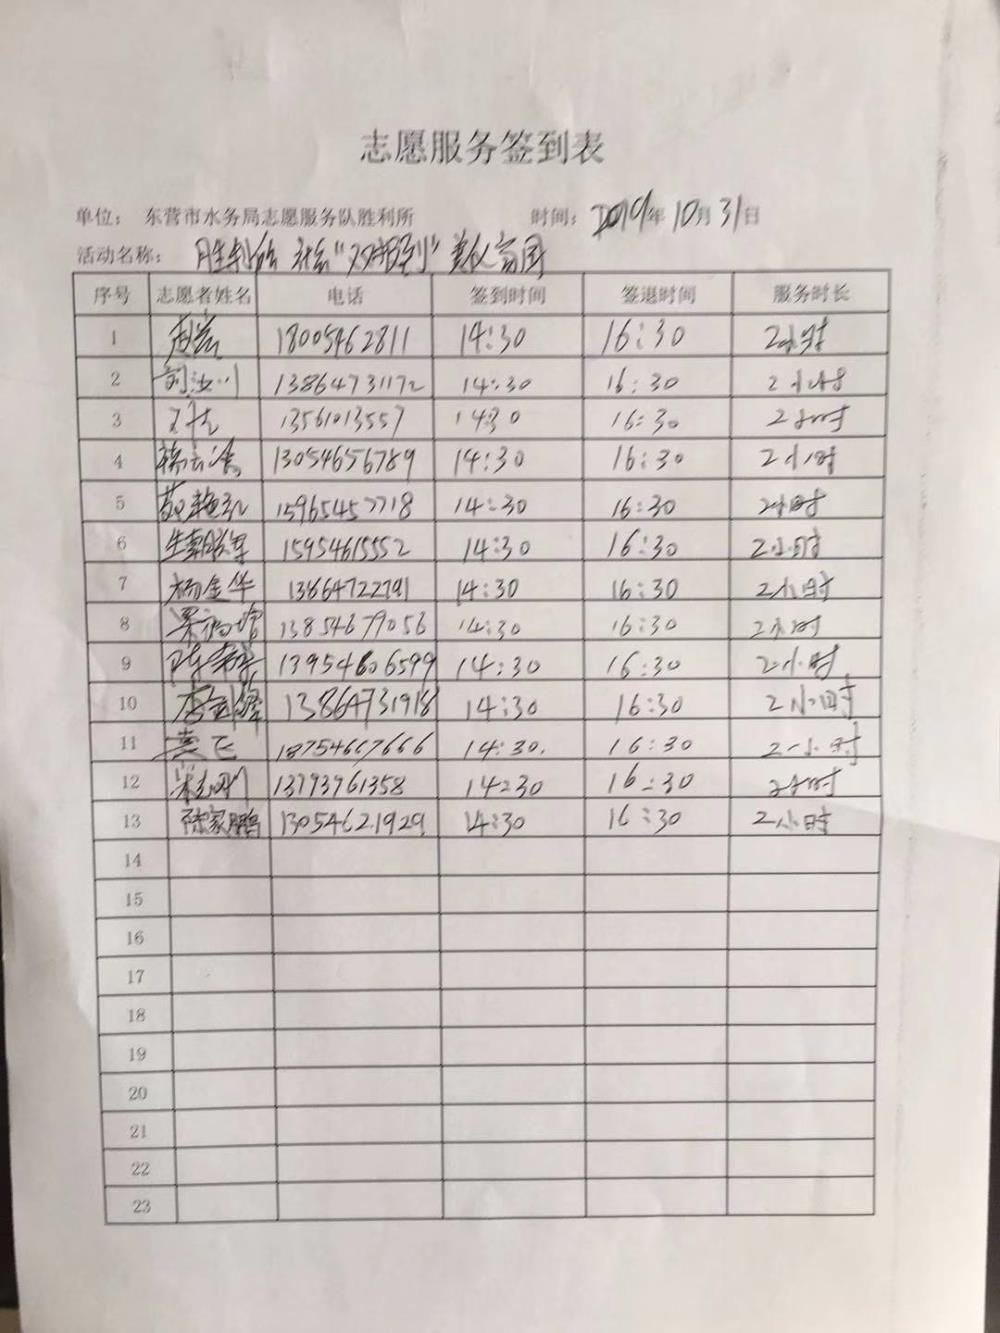 志愿服务签到表
单位： 东营市水务局志愿服务队胜利所 时间：2019年10月31日
活动名称： 胜利所 社会"双报到"
序号 志愿者姓名 电话 签到时间 签退时间 服务时长
1 18005462811 14:30 16:30 2小时
2 刘汝川 13864731172 14:30 16:30 2小时
3 13561013557 1430 16:30 2小时
4 13054656789 14:30 16:30 2小时
5 15965457718 14:30 16:30 2小时
6 15954615552 14:30 16:30 2小时
7 杨金华 13864722791 14:30 16:30 2小时
8 13854679056 14:30 16:30 2小时
9 13954606599 14:30 16:30 2小时
10 13864731918 14:30 16:30 2小时
11 袁飞 18754667666 14:30. 16:30 2小时
12 13793761358 14:30 16:30 2小时
13 陈家鹏 13054621929 14:30 16:30 2小时
14
15
16
17
18
19
20
21
22
23